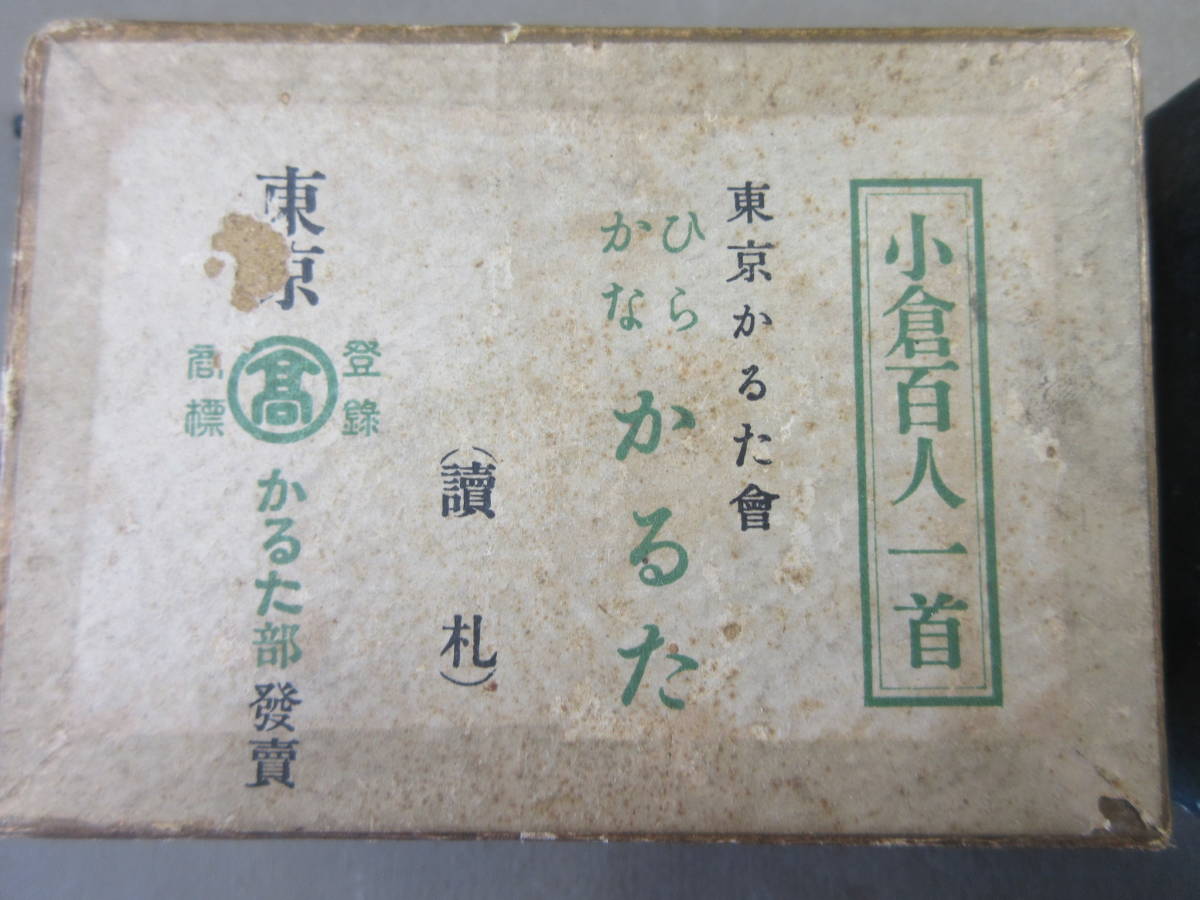 小倉百人一首
東京かるた會
ひら
かな
かるた
(讀札)
東京
登錄
商標
髙
かるた部發賣